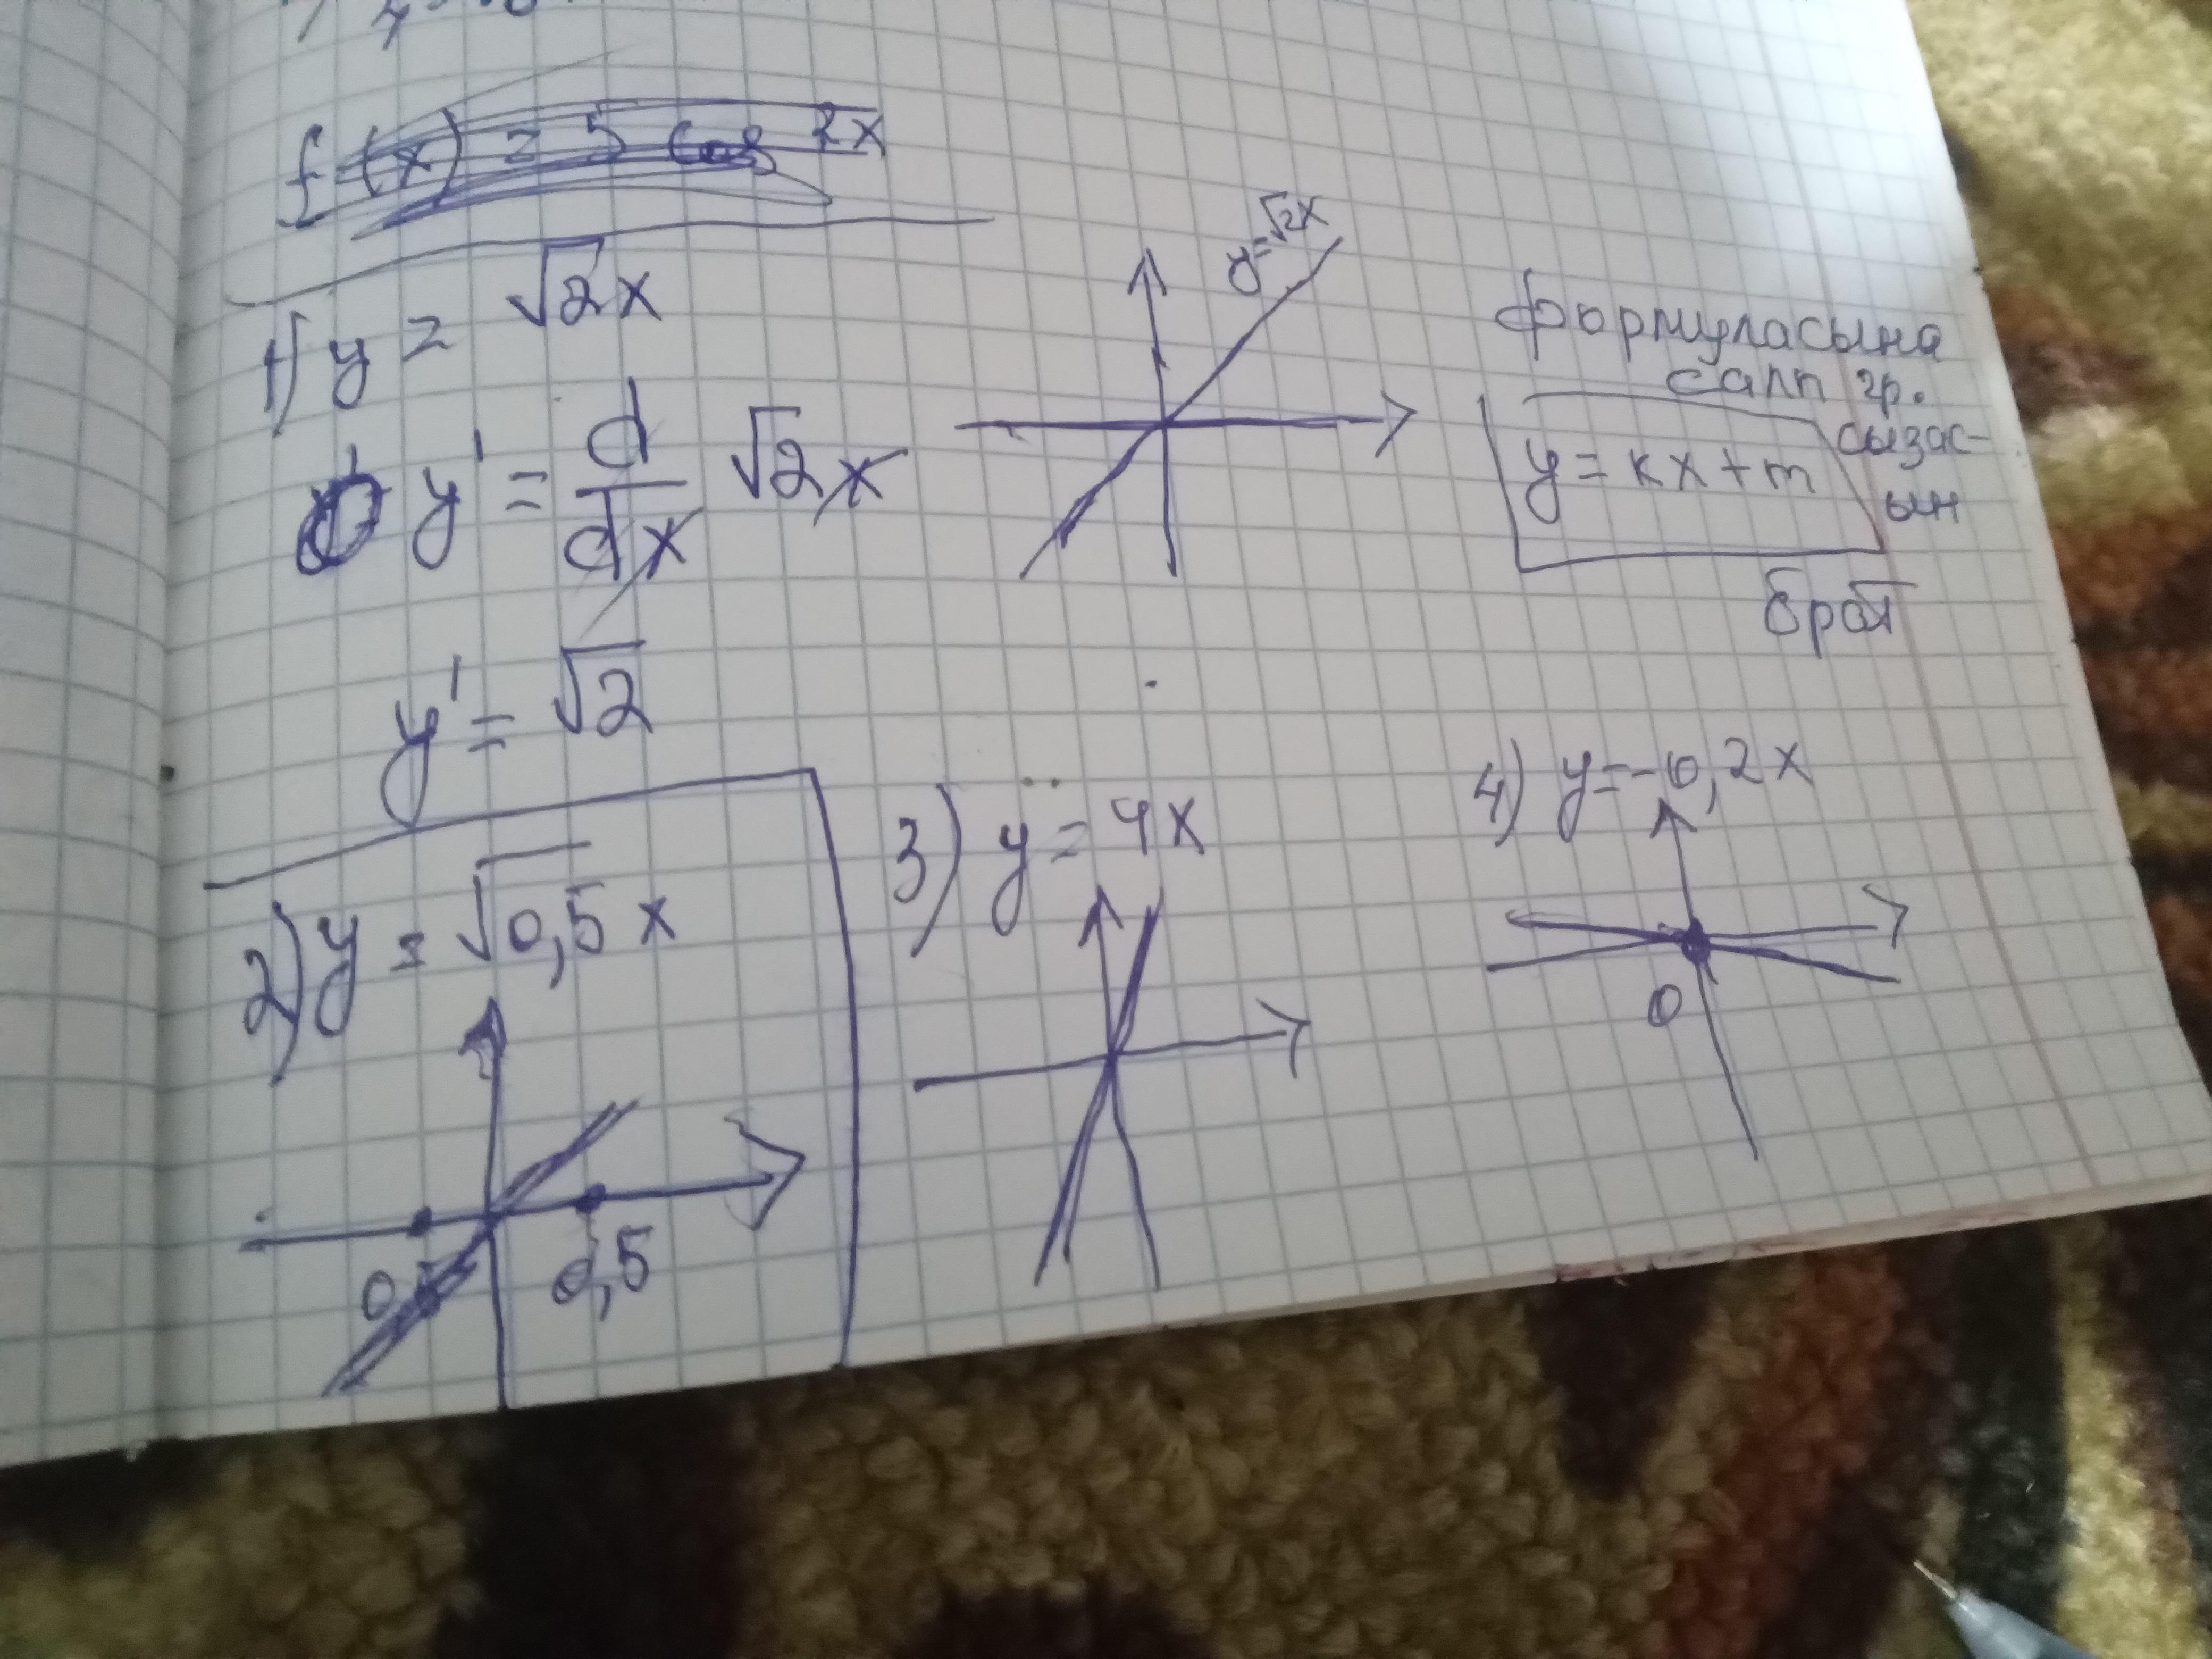 f(x) = 5 cos 2x
1) y = √2x
y' = d/dx √2x
y' = √2
y=√2x
формуласына
салп гр.
сызас-
ын
y = kx + m
брат
2) y = √0,5 x
0,5
3) y = 4x
4) y = -0,2x
0